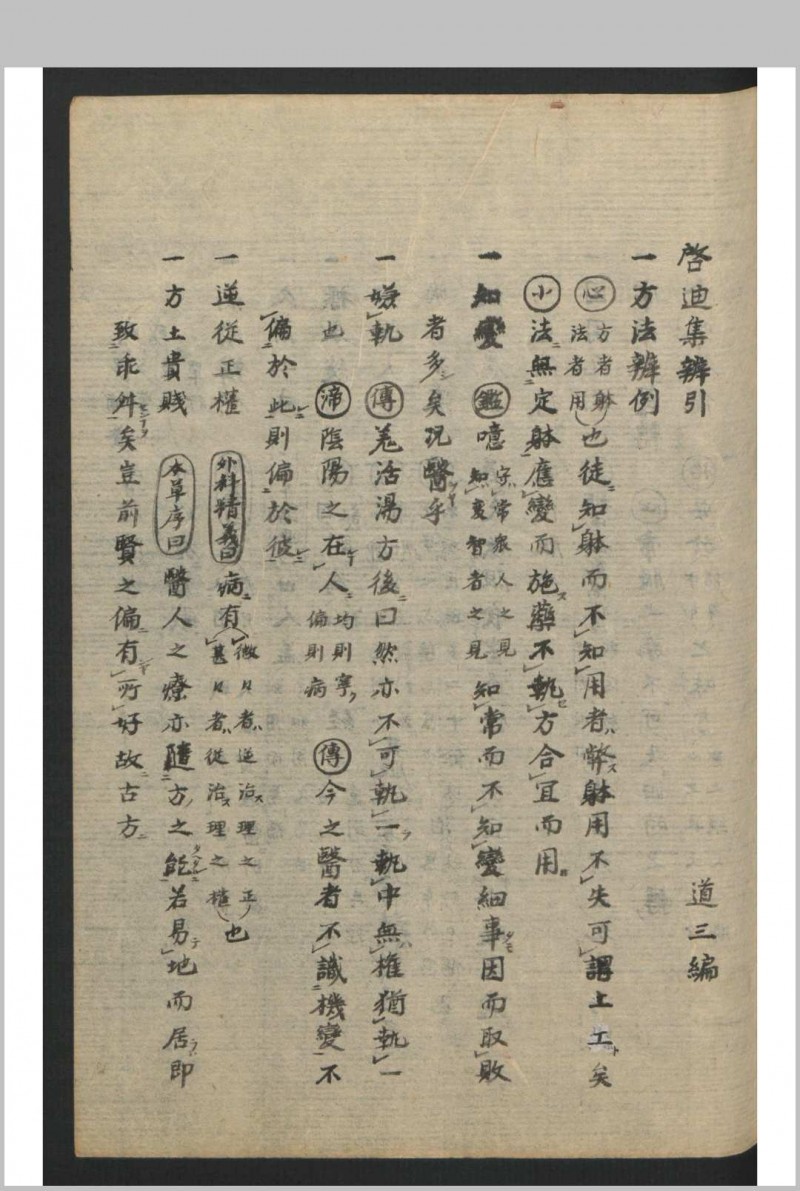 啓迪集辨引　道三編
一方法辨例
心 方者躰 法者用 也徒知躰而不知用者弊躰用不失可謂上工矣
小 法無定躰應變而施藥不執方合宜而用
一知變 鑑 噫 守常衆人之見 知変智者之見 知常而不知變細事因而取敗
者多矣况醫乎
一嫌執 傳 羗活湯方後曰然亦不可執一執中無権猶執一
也 渧 陰陽之在人 均則寧 偏則病 傳 今之醫者不識機變不
偏於此則偏於彼
一逆従正權 外科精義曰 病有 微者逆治理之正 甚者従治理之権 也
一方土貴賤 本草序曰 醫人之療亦隨方之能若易地而居即
致乖舛矣豈前賢之偏有所好故古方